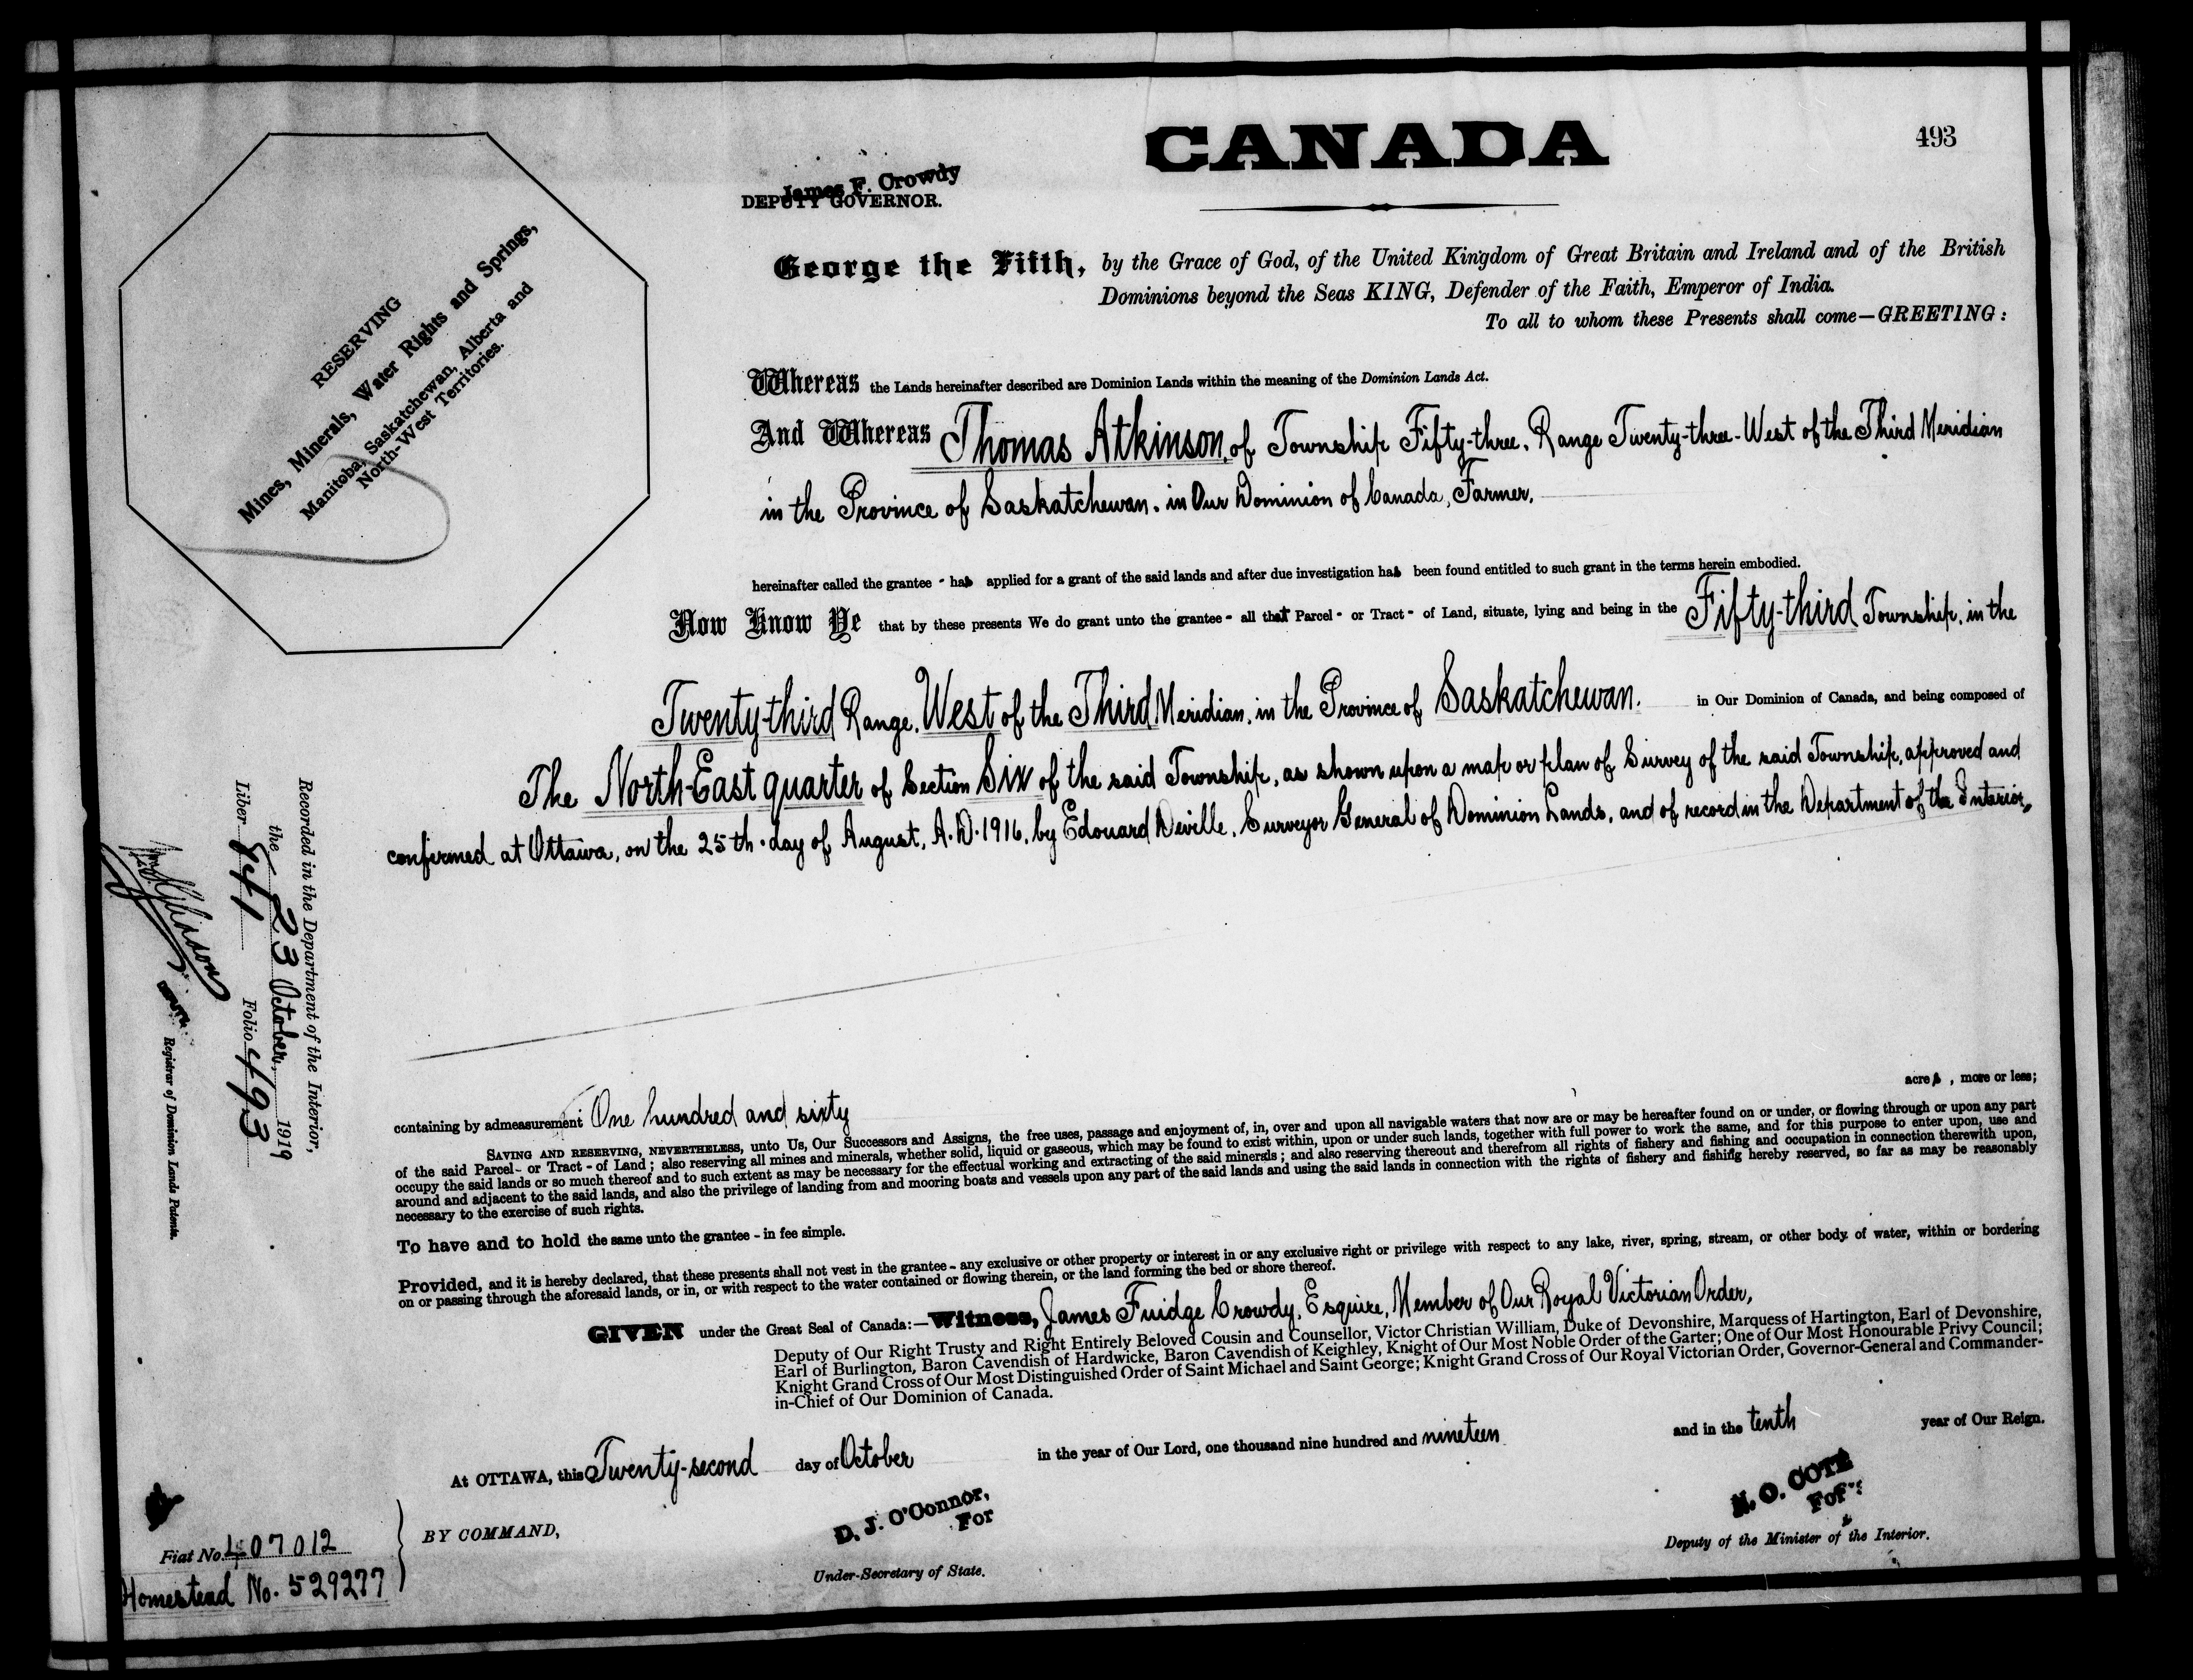 CANADA
493
James F. Crowdy
DEPUTY GOVERNOR.
George the Fifth, by the Grace of God, of the United Kingdom of Great Britain and Ireland and of the British
Dominions beyond the Seas KING, Defender of the Faith, Emperor of India.
To all to whom these Presents shall come—GREETING:
RESERVING
Mines, Minerals, Water Rights and Springs,
Manitoba, Saskatchewan, Alberta and
North-West Territories.
Whereas the Lands hereinafter described are Dominion Lands within the meaning of the Dominion Lands Act.
And Whereas Thomas Atkinson, of Township Fifty-three, Range Twenty-three, West of the Third Meridian
in the Province of Saskatchewan, in Our Dominion of Canada, Farmer,
hereinafter called the grantee - has applied for a grant of the said lands and after due investigation has been found entitled to such grant in the terms herein embodied.
Now Know Ye that by these presents We do grant unto the grantee - all that Parcel - or Tract - of Land, situate, lying and being in the Fifty-third Township, in the
Twenty-third Range, West of the Third Meridian, in the Province of Saskatchewan, in Our Dominion of Canada, and being composed of
The North-East quarter of Section Six of the said Township, as shown upon a map or plan of Survey of the said Township, approved and
confirmed at Ottawa, on the 25th day of August, A.D. 1916, by Edouard Deville, Surveyor General of Dominion Lands, and of record in the Department of the Interior,
containing by admeasurement One hundred and sixty acres, more or less;
SAVING AND RESERVING, NEVERTHELESS, unto Us, Our Successors and Assigns, the free uses, passage and enjoyment of, in, over and upon all navigable waters that now are or may be hereafter found on or under, or flowing through or upon any part
of the said Parcel - or Tract - of Land; also reserving all mines and minerals, whether solid, liquid or gaseous, which may be found to exist within, upon or under such lands, together with full power to work the same, and for this purpose to enter upon, use and
occupy the said lands or so much thereof and to such extent as may be necessary for the effectual working and extracting of the said minerals; and also reserving thereout and therefrom all rights of fishery and fishing and occupation in connection therewith upon,
around and adjacent to the said lands, and also the privilege of landing from and mooring boats and vessels upon any part of the said lands and using the said lands in connection with the rights of fishery and fishing hereby reserved, so far as may be reasonably
necessary to the exercise of such rights.
To have and to hold the same unto the grantee - in fee simple.
Provided, and it is hereby declared, that these presents shall not vest in the grantee - any exclusive or other property or interest in or any exclusive right or privilege with respect to any lake, river, spring, stream, or other body of water, within or bordering
on or passing through the aforesaid lands, or in, or with respect to the water contained or flowing therein, or the land forming the bed or shore thereof.
GIVEN under the Great Seal of Canada:—Witness, James Fuidge Crowdy, Esquire, Member of Our Royal Victorian Order,
Deputy of Our Right Trusty and Right Entirely Beloved Cousin and Counsellor, Victor Christian William, Duke of Devonshire, Marquess of Hartington, Earl of Devonshire,
Earl of Burlington, Baron Cavendish of Hardwicke, Baron Cavendish of Keighley, Knight of Our Most Noble Order of the Garter; One of Our Most Honourable Privy Council;
Knight Grand Cross of Our Most Distinguished Order of Saint Michael and Saint George; Knight Grand Cross of Our Royal Victorian Order, Governor-General and Commander-
in-Chief of Our Dominion of Canada.
At OTTAWA, this Twenty-second day of October in the year of Our Lord, one thousand nine hundred and nineteen and in the tenth year of Our Reign.
BY COMMAND,
D. J. O'Connor,
For
Under-Secretary of State.
N. O. COTE
For
Deputy of the Minister of the Interior.
Fiat No. 407012
Homestead No. 529277
Recorded in the Department of the Interior,
the 23 October, 1919
Liber 841 Folio 493
DEPUTY Registrar of Dominion Lands Patents.